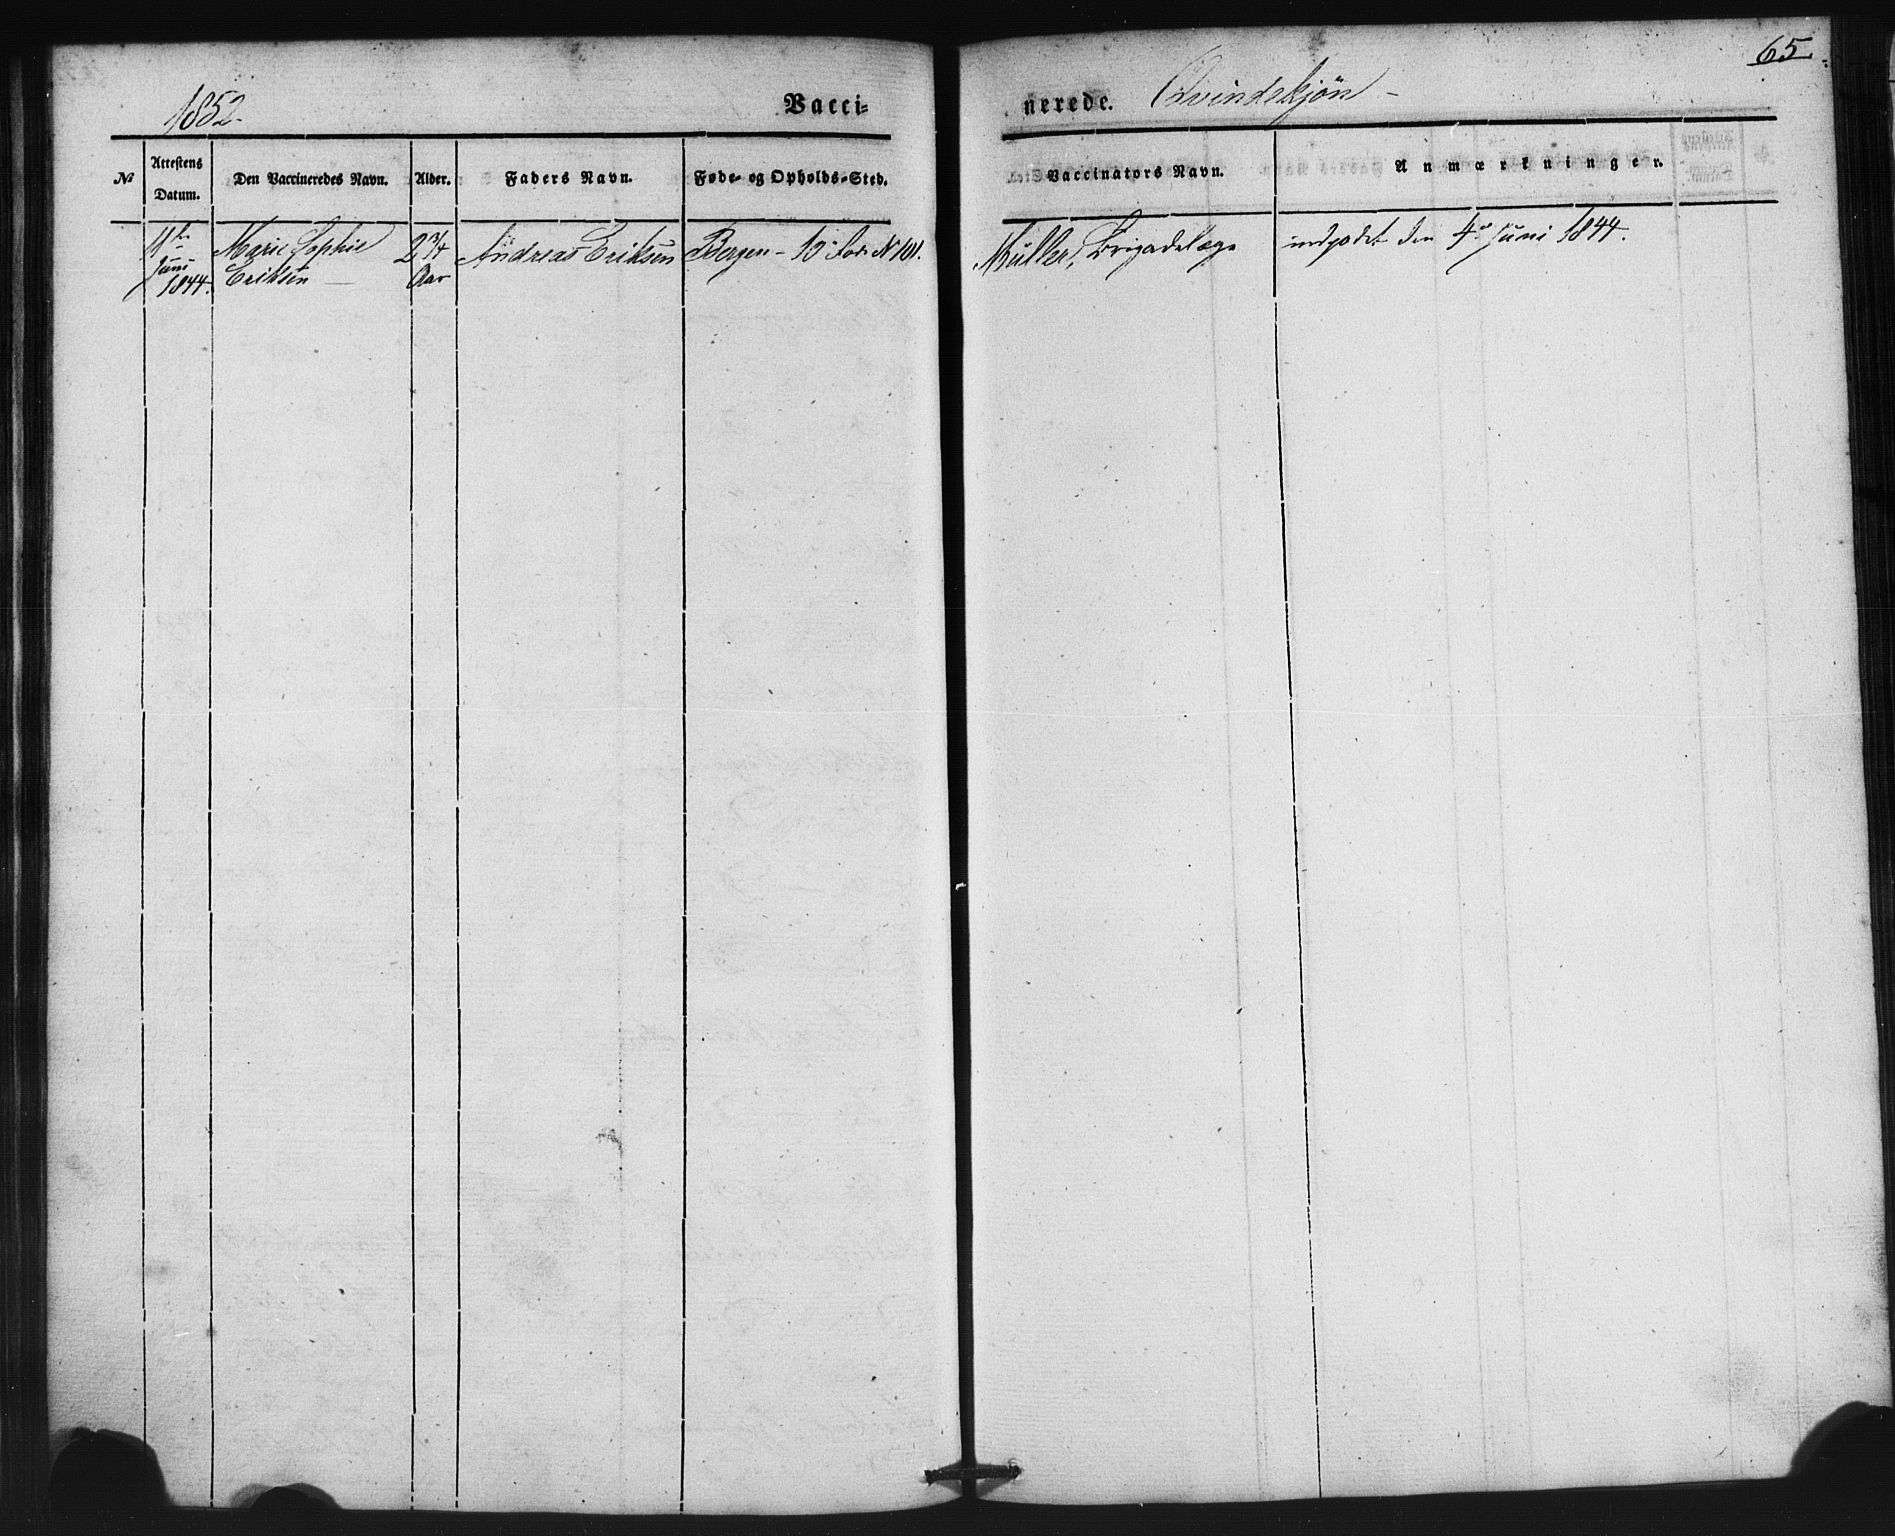 65.
1852.
Vacci-
nerede. Qvindekjøn -
№
Attestens Datum.
Den Vaccineredes Navn.
Alder.
Faders Navn.
Føde- og Opholds-Sted.
Vaccinators Navn.
Anmærkninger.
11te Juni 1844.
Marie Sophie Eriksen
2 3/4 Aar
Andreas Eriksen
Bergen - 10 Rode N 101.
Müller, Brigadelæge
indpodet den 4de Juni 1844.